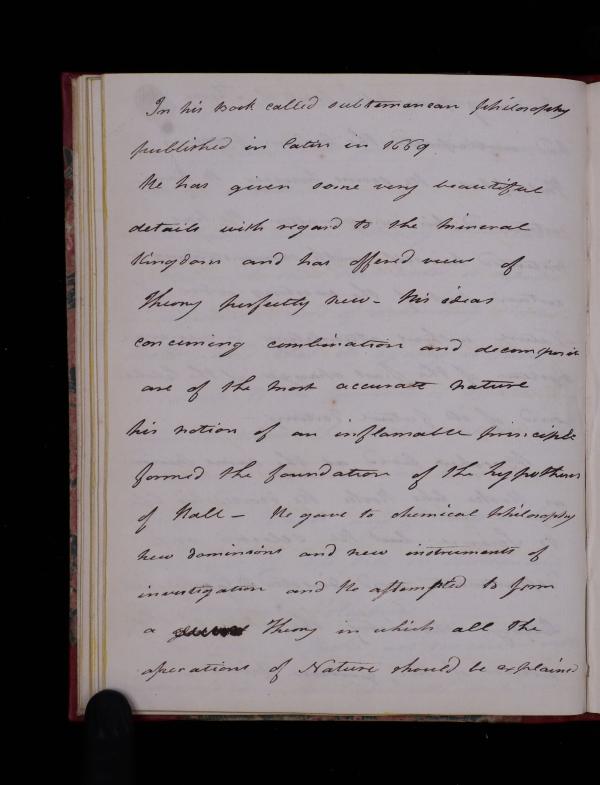 In his Book called subterranean philosophy
published in latin in 1669.
He has given some very beautiful
details with regard to the mineral
Kingdom and has offered views of
Theory perfectly new - His ideas
concerning combination and decomposit
are of the most accurate nature
his notion of an inflamable principle
formed the foundation of the hypothesis
of Stall - He gave to chemical philosophy
new dominions and new instruments of
investigation and He attempted to form
a Theory in which all the
operations of Nature should be explained